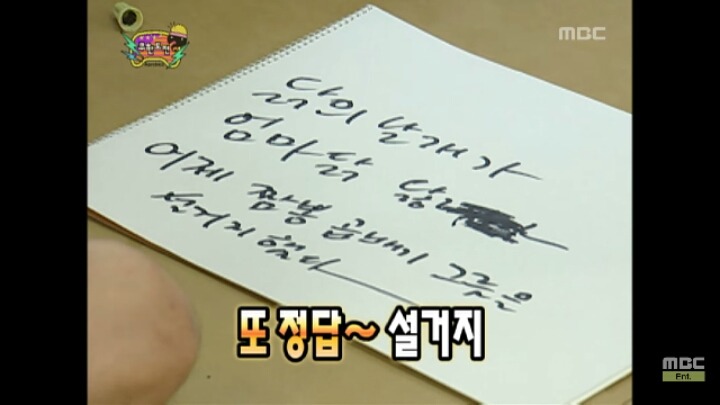 MBC
무한도전
닭의 날개가
엄마닭
어제 짬뽕 곱배기 그릇을
설거지 했다
또 정답~ 설거지
MBC
Ent.